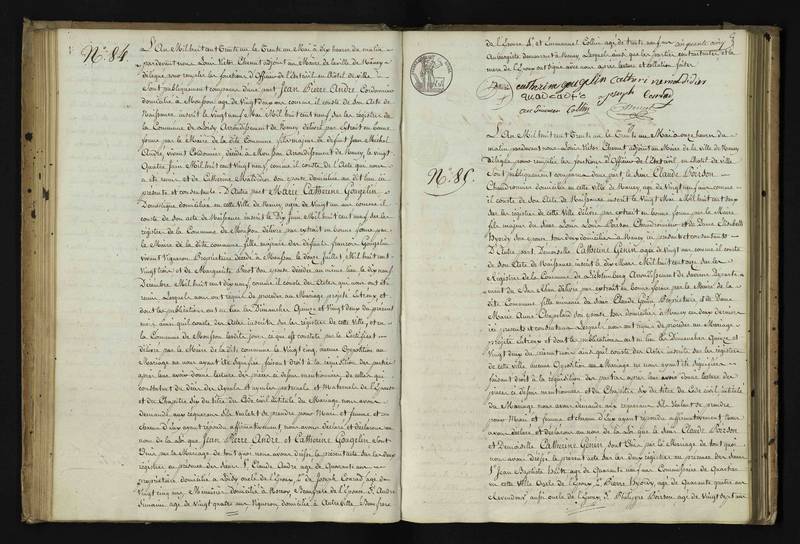 N.o 84.
L'An Mil huit cent Trente un le Trente un Mai à dix heures du matin
pardevant nous Louis Victor Clement adjoint au Maire de la ville de Nancy
délégué pour remplir les fonctions d'Officier de l'Etat civil en l'hôtel de ville
Sont publiquement comparus d'une part Jean Pierre André Cordonnier
domicilié à Mousson âgé de vingt deux ans comme il conste de son Acte de
Naissance inscrit le vingt neuf Mai Mil huit cent neuf sur les registres de
la Commune de Arrondissement de Nancy délivré par extrait en bonne
forme par le Maire de la dite Commune fils majeur de défunt Jean Michel
André, vivant Cordonnier décédé à Mousson Arrondissement de Nancy le vingt
Quatre Juin Mil huit cent vingt neuf comme il conste de l'Acte qui nous
a été remis et de Catherine son épouse domiciliée au dit lieu ici
présente et consentante. D'Autre part Marie Catherine Gougelin
Domestique domiciliée en cette Ville de Nancy âgée de Vingt un ans comme il
conste de son acte de Naissance inscrit le Dix Juin Mil huit cent neuf sur les
registres de la Commune de Mousson délivré par extrait en bonne forme par
le Maire de la dite commune fille majeure de défunt françois Gougelin
vivant Vigneron Propriétaire décédé à Mousson le douze juillet Mil huit cent
vingt trois et de Marguerite son épouse décédée au même lieu le dix neuf
Décembre Mil huit cent dix neuf comme il conste des Actes qui nous ont été
remis Lesquels nous ont requis de procéder au Mariage projeté entr'eux et
dont les publications ont eu lieu les Dimanches Quinze et Vingt deux du présent
mois ainsi qu'il conste des Actes inscrits sur les registres de cette Ville, et en
la Commune de Mousson les dits jours ce qui est constaté par le Certificat
délivré par le Maire de la dite commune le Vingt cinq, aucune Opposition au
Mariage ne nous ayant été signifiée faisant droit à la réquisition des parties
après leur avoir donné lecture des pièces ci dessus mentionnées de celles qui
constatent du décès des Ayeuls et ayeules paternels et Maternels de l'Epouse
et du Chapitre Six du titre du Code civil Intitulé du Mariage nous avons
demandé aux comparans s'ils Veulent se prendre pour Mari et femme et
chacun d'eux ayant répondu affirmativement nous avons déclaré et déclarons au
nom de la Loi que Jean Pierre André et Catherine Gougelin Sont
Unis par le Mariage de tout quoi nous avons dressé le présent acte sur les deux
registres en présence des Sieurs 1.° Claude André âgé de Quarante ans
propriétaire domicilié à oncle de l'Epoux, 2.° Joseph Conrad âgé de
vingt cinq ans, Menuisier domicilié à Beaufrere de l'Epoux 3.° André
âgé de vingt quatre ans Vigneron domicilié à Autreville Beau frere
de l'Epouse 4.° et Emmanuel Collin âgé de trente neuf ans
Aubergiste demeurant à Nancy Lesquels ainsi que les parties contractantes et la
mère de l'Epoux ont signé avec nous après lecture et collation faites
catherine gougelin
Joseph Conrad
Collin
Clement
N.o 85.
L'An Mil huit cent Trente un le Trente un Mai à onze heures du
matin pardevant nous Louis Victor Clement adjoint au Maire de la Ville de Nancy
Délégué pour remplir les fonctions d'Officier de l'Etat civil en l'hôtel de ville
Sont publiquement comparus d'une part le Sieur Claude Poirson
Chaudronnier domicilié en cette Ville de Nancy âgé de Vingt neuf ans comme
il conste de son Acte de Naissance inscrit le Vingt Mai Mil huit cent deux
sur les registres de cette Ville délivré par extrait en bonne forme par le Maire
fils majeur du Sieur Louis Poirson Chaudronnier et de Dame Elisabeth
son épouse tous deux domiciliés à Nancy ici présents et consentants
D'Autre part Demoiselle Catherine Génin âgée de Vingt ans comme il conste
de son Acte de Naissance inscrit le dix Mars Mil huit cent onze sur les
Registres de la Commune de Arrondissement de Saverne Departe
ment du Bas Rhin délivré par extrait en bonne forme par le Maire de la
dite Commune fille mineure du Sieur Claude Génin Propriétaire et de Dame
Marie Anne Chapelaid son épouse domiciliés à Nancy ces deux derniers
ici présents et consentans Lesquels nous ont requis de procéder au Mariage
projeté entr'eux et dont les publications ont eu lieu les Dimanches Quinze et
Vingt deux du présent mois ainsi qu'il conste des Actes inscrits sur les registres
de cette ville aucune Opposition au Mariage ne nous ayant été signifiée
faisant droit à la réquisition des parties après leur avoir donné lecture des
pièces ci dessus mentionnées et du Chapitre Six du titre du Code civil intitulé
du Mariage nous avons demandé aux comparans s'ils Veulent se prendre
pour Mari et femme et chacun d'eux ayant répondu affirmativement nous
avons déclaré et déclarons au nom de la Loi que le Sieur Claude Poirson
et Demoiselle Catherine Génin sont Unis par le Mariage de tout quoi
nous avons dressé le présent acte sur les deux registres en présence des Sieurs
1.° Jean Baptiste âgé de Quarante neuf ans Commissaire de Quartier
en cette Ville Oncle de l'Epoux, 2.° Pierre âgé de Quarante quatre ans
Revendeur aussi oncle de l'Epoux, 3.° Philippe Poirson âgé de Vingt sept ans